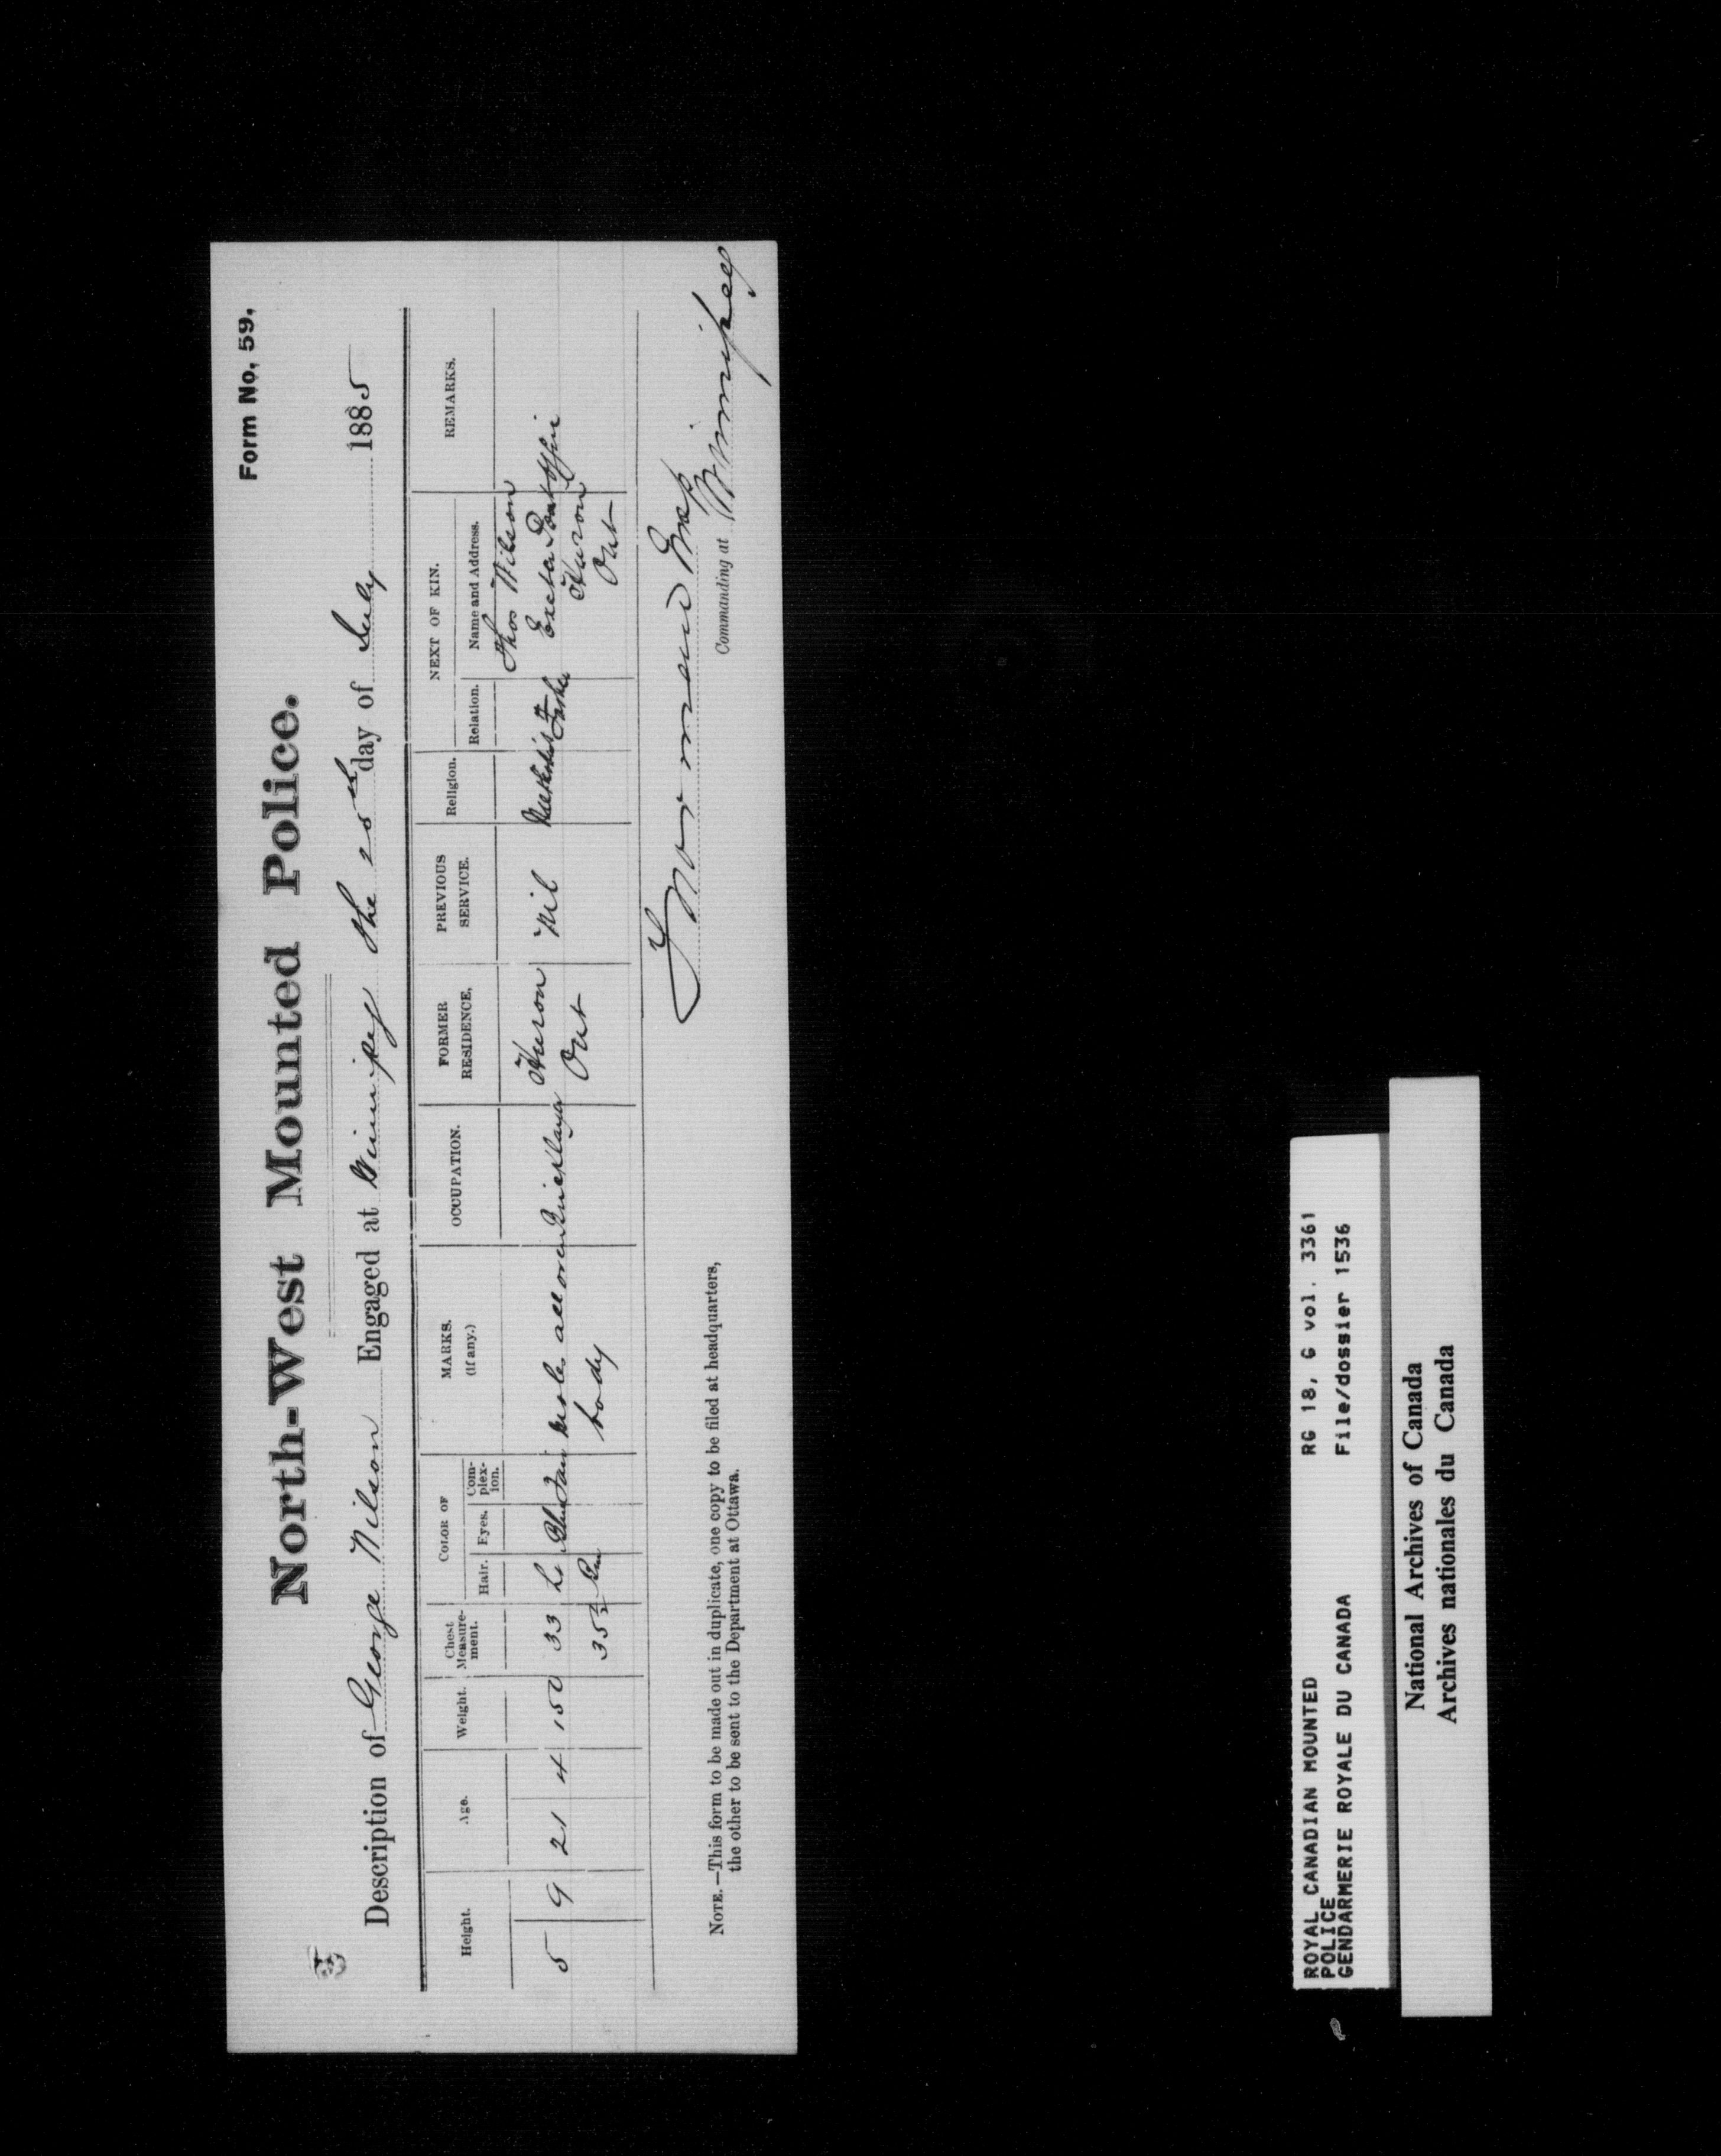 Form No. 59.
North-West Mounted Police.
Description of George Wilson Engaged at Winnipeg the 25th day of July 1885
Height. Age. Weight. Chest Measure-ment. COLOR OF Hair. Eyes. Com-plex-ion. MARKS. (If any.) OCCUPATION. FORMER RESIDENCE. PREVIOUS SERVICE. Religion. NEXT OF KIN. Relation. Name and Address. REMARKS.
Thos Wilson
5 9 21 4 150 33 Lt Blue Fair Moles all over Bricklayer Huron Nil Methodist Father Exeter Post Office
35½ Brn body Ont Huron
Ont
Norman
Commanding at Winnipeg
NOTE.—This form to be made out in duplicate, one copy to be filed at headquarters,
the other to be sent to the Department at Ottawa.
ROYAL CANADIAN MOUNTED RG 18, G vol. 3361
POLICE
GENDARMERIE ROYALE DU CANADA File/dossier 1536
National Archives of Canada
Archives nationales du Canada